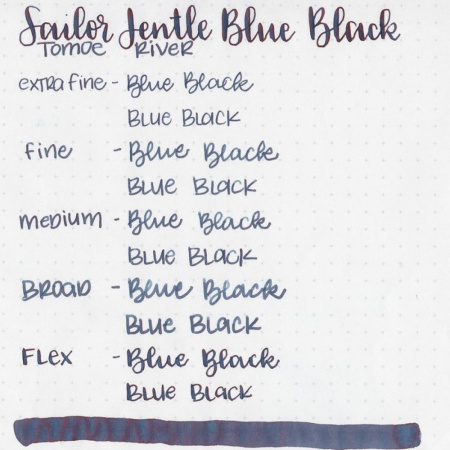 Sailor Jentle Blue Black
Tomoe River
extra fine - Blue Black
Blue Black
fine - Blue Black
Blue Black
medium - Blue Black
Blue Black
Broad - Blue Black
Blue Black
Flex - Blue Black
Blue Black